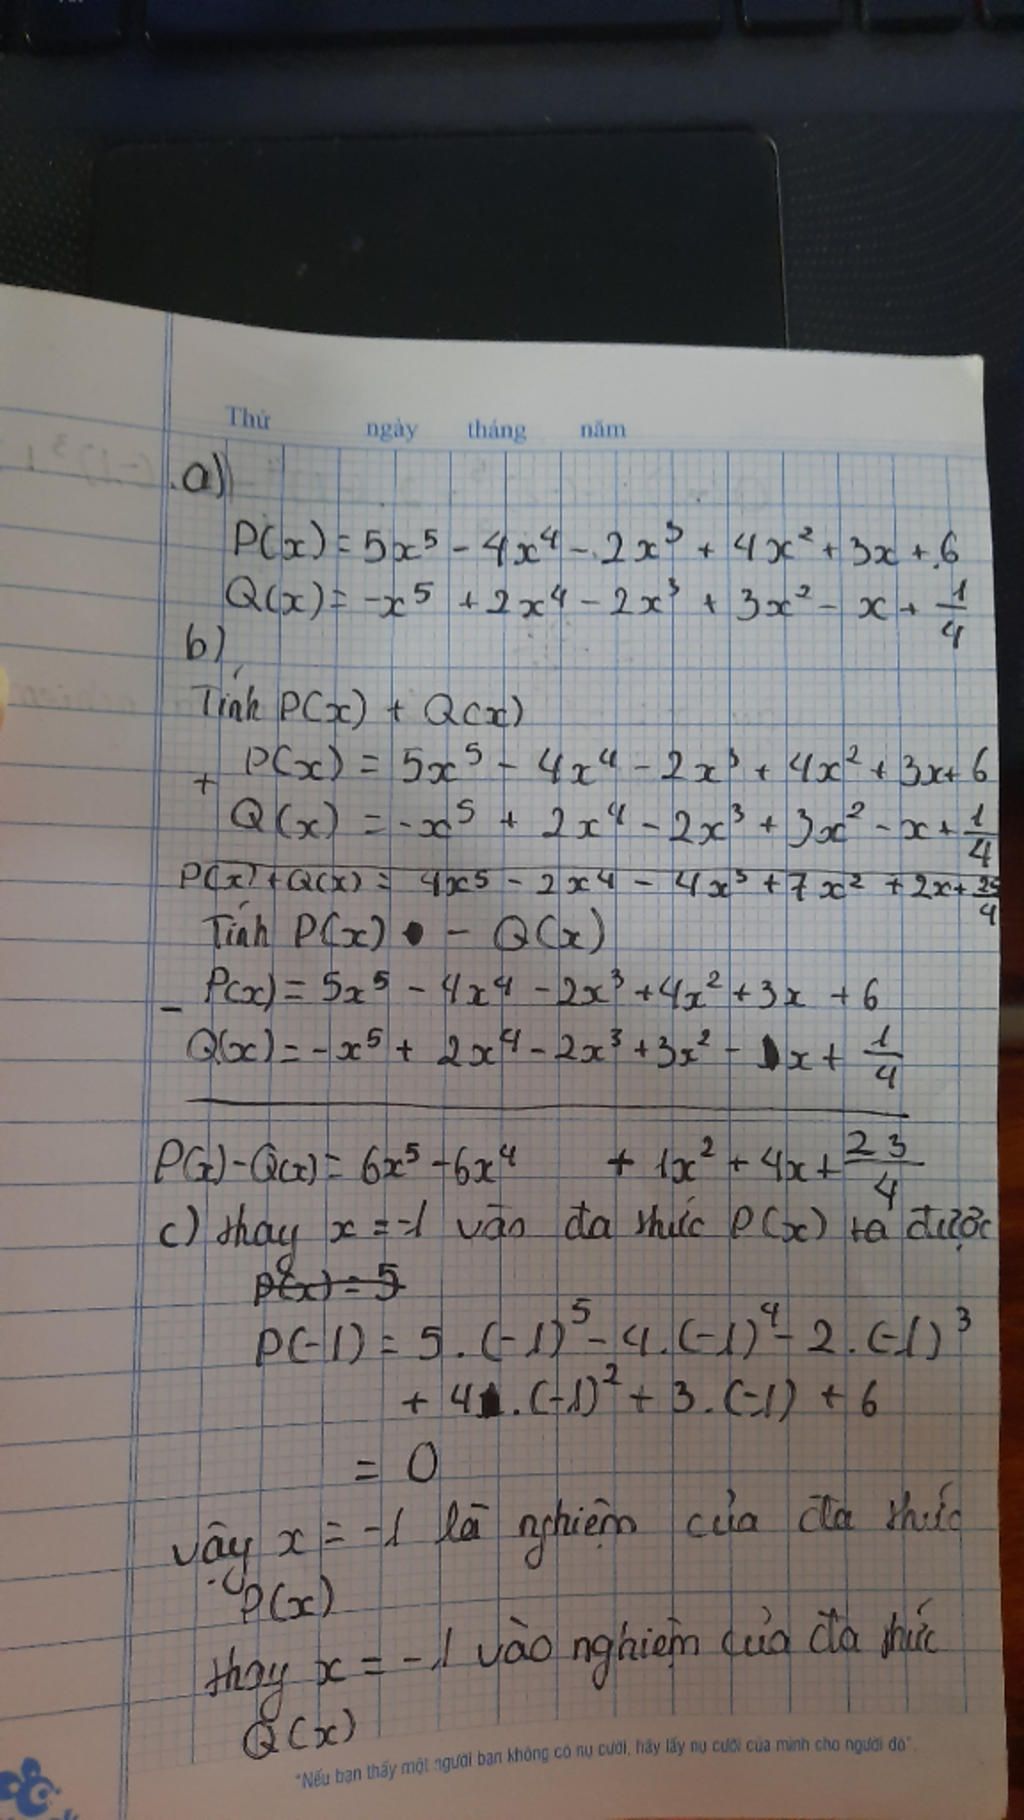 Thứ ngày tháng năm
a)
P(x) = 5x⁵ - 4x⁴ - 2x³ + 4x² + 3x + 6
Q(x) = -x⁵ + 2x⁴ - 2x³ + 3x² - x + 1/4
b)
Tính P(x) + Q(x)
+ P(x) = 5x⁵ - 4x⁴ - 2x³ + 4x² + 3x + 6
Q(x) = -x⁵ + 2x⁴ - 2x³ + 3x² - x + 1/4
P(x) + Q(x) = 4x⁵ - 2x⁴ - 4x³ + 7x² + 2x + 25/4
Tính P(x) - Q(x)
- P(x) = 5x⁵ - 4x⁴ - 2x³ + 4x² + 3x + 6
Q(x) = -x⁵ + 2x⁴ - 2x³ + 3x² - 1x + 1/4
P(x) - Q(x) = 6x⁵ - 6x⁴ + 1x² + 4x + 23/4
c) thay x = -1 vào đa thức P(x) ta được
P(x) = 5
P(-1) = 5.(-1)⁵ - 4.(-1)⁴ - 2.(-1)³
+ 4.(-1)² + 3.(-1) + 6
= 0
vậy x = -1 là nghiệm của đa thức
P(x)
thay x = -1 vào nghiệm của đa thức
Q(x)
"Nếu bạn thấy một người bạn không có nụ cười, hãy lấy nụ cười của mình cho người đó".